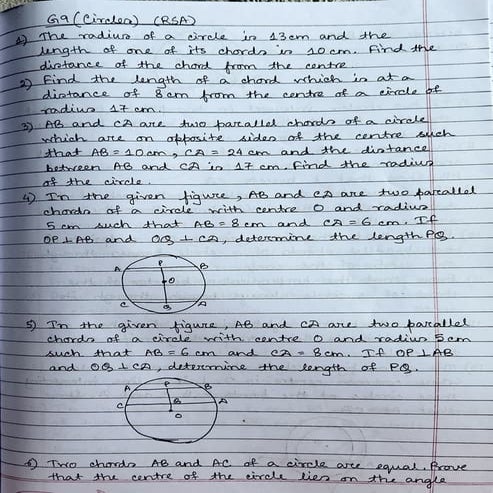 G9 (Circles) (RSA)
1) The radius of a circle is 13cm and the
length of one of its chords is 10 cm. Find the
distance of the chord from the centre
2) Find the length of a chord which is at a
distance of 8 cm from the centre of a circle of
radius 17 cm.
3) AB and CD are two parallel chords of a circle
which are on opposite sides of the centre such
that AB = 10cm, CD = 24 cm and the distance
between AB and CD is 17 cm. Find the radius
of the circle.
4) In the given figure, AB and CD are two parallel
chords of a circle with centre O and radius
5 cm such that AB = 8 cm and CD = 6 cm. If
OP ⊥ AB and OQ ⊥ CD, determine the length PQ.
A P B
O
C Q D
5) In the given figure, AB and CD are two parallel
chords of a circle with centre O and radius 5cm
such that AB = 6 cm and CD = 8cm. If OP ⊥ AB
and OQ ⊥ CD, determine the length of PQ.
A P B
C Q D
O
6) Two chords AB and AC of a circle are equal. Prove
that the centre of the circle lies on the angle